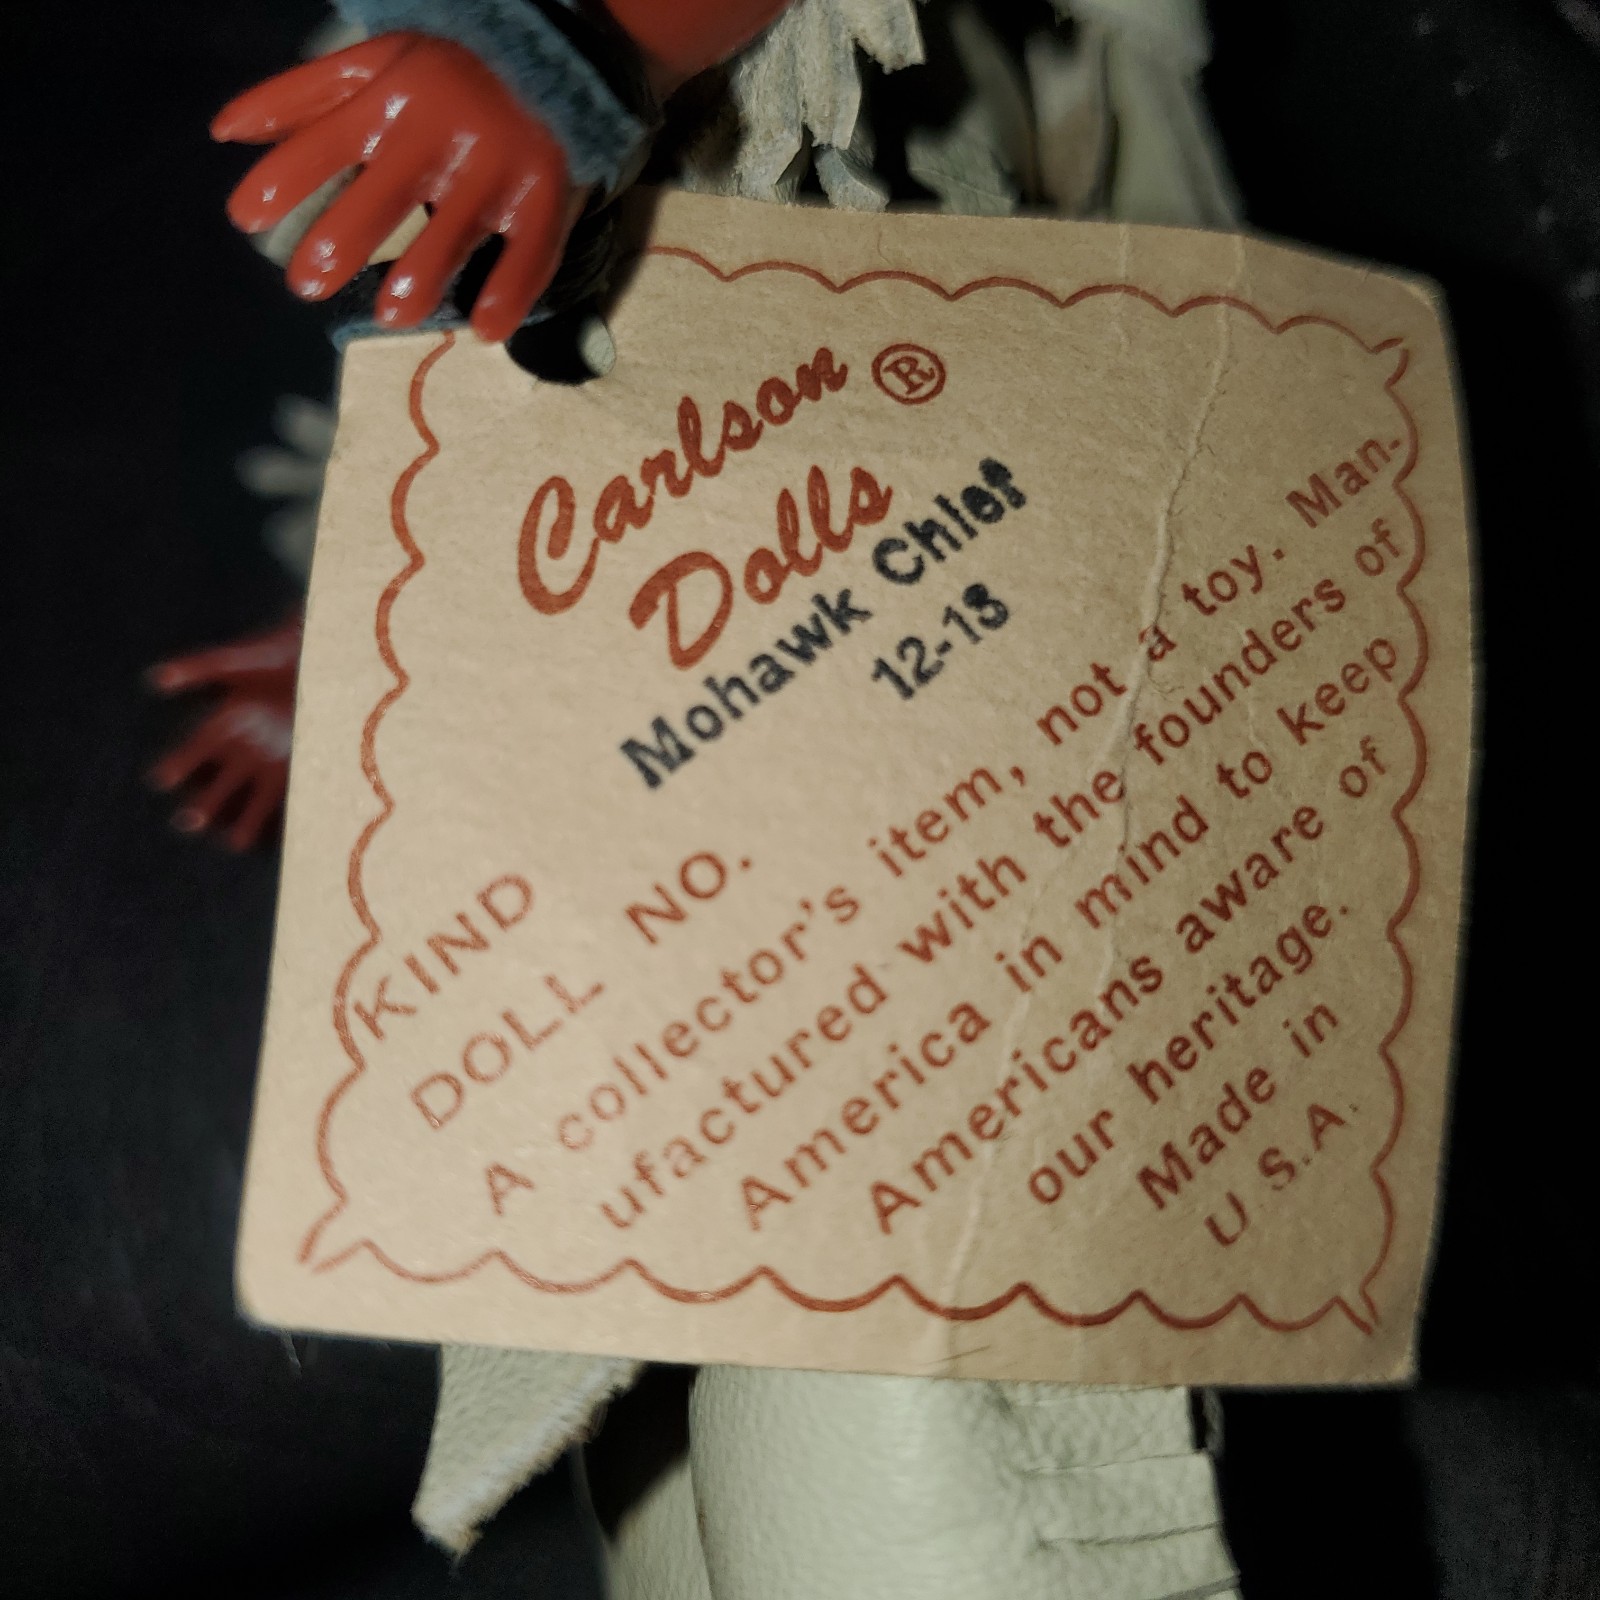 Carlson ®
Dolls
Mohawk Chief
12-13
KIND
DOLL NO.
A collector's item, not a toy. Man-
ufactured with the founders of
America in mind to keep
Americans aware of
our heritage.
Made in
U.S.A.